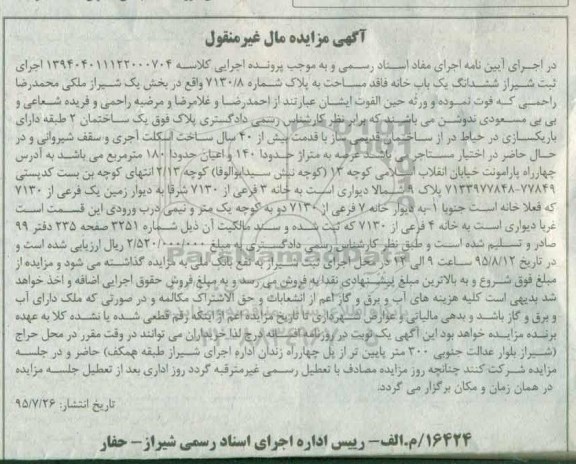 آگهی مزایده مال غیرمنقول
در اجرای آیین نامه اجرای مفاد اسناد رسمی و به موجب پرونده اجرایی کلاسه ۱۳۹۴۰۴۰۱۱۱۲۲۰۰۰۷۰۴ اجرای
ثبت شیراز ششدانگ یک باب خانه فاقد مساحت به پلاک شماره ۷۱۳۰/۸ واقع در بخش یک شیراز ملکی محمدرضا
راحمی که فوت نموده و ورثه حین الفوت ایشان عبارتند از احمدرضا و غلامرضا و مرضیه راحمی و فریده شعاعی و
بی بی مسعودی ندوشن می باشند که برابر نظر کارشناس رسمی دادگستری پلاک فوق یک ساختمان ۲ طبقه دارای
پارکینگ در حیاط در از ساخت قدیمی ساز با قدمت بیش از ۴۰ سال ساخت اسکلت آجری و سقف شیروانی و در
حال حاضر در اختیار مستاجر می باشد عرصه به متراژ حدودا ۱۴۰ و اعیان حدودا ۱۸۰ مترمربع می باشد به آدرس
چهارراه پارامونت خیابان انقلاب اسلامی کوچه ۱۳ (کوچه نبش سیدابوالوفا) کوچه ۲/۱۳ انتهای کوچه بن بست کدپستی
۷۷۸۴۹-۷۱۳۳۹۷۷۸۴۸ پلاک ۹ شمالا دیواری است به خانه ۳ فرعی از ۷۱۳۰ شرقا به دیوار زمین یک فرعی از ۷۱۳۰
که فعلا خانه است جنوبا ۱-به دیوار خانه ۷ فرعی از ۷۱۳۰ دو به کوچه یک متر و نیمی درب ورودی این قسمت است
غربا دیواری است به خانه ۴ فرعی از ۷۱۳۰ که ثبت شده و سند مالکیت آن ذیل شماره ۳۲۵۱ صفحه ۲۳۵ دفتر ۹۹
صادر و تسلیم شده است و طبق نظر کارشناس رسمی دادگستری به مبلغ ۲/۵۲۰/۰۰۰/۰۰۰ ریال ارزیابی شده است و
در تاریخ ۹۵/۸/۱۲ ساعت ۹ الی ۱۲ در محل اجرای ثبت شیراز به نفع بانک ملی به مزایده گذاشته می شود و مزایده از
مبلغ فوق شروع و به بالاترین مبلغ پیشنهادی نقدا به فروش می رسد و به مبلغ فروش حقوق اجرایی اضافه و اخذ خواهد
شد بدیهی است کلیه هزینه های آب و برق و گاز اعم از انشعابات و حق الاشتراک مکالمه و در صورتی که ملک دارای آب
و برق و گاز باشد و بدهی مالیاتی و عوارض شهرداری تا تاریخ مزایده اعم از اینکه رقم قطعی شده یا نشده کلا به عهده
برنده مزایده خواهد بود این آگهی یک نوبت در روزنامه درج لذا خریداران می توانند در وقت مقرر در محل حراج
(شیراز بلوار عدالت جنوبی ۳۰۰ متر پایین تر از پل چهارراه زندان اداره اجرای شیراز طبقه همکف) حاضر و در جلسه
مزایده شرکت کنند چنانچه روز مزایده مصادف با تعطیل رسمی غیرمترقبه گردد روز اداری بعد از تعطیل جلسه مزایده
در همان زمان و مکان برگزار می گردد.
تاریخ انتشار: ۹۵/۷/۲۶
۱۶۴۲۴/م.الف- رییس اداره اجرای اسناد رسمی شیراز- حفار